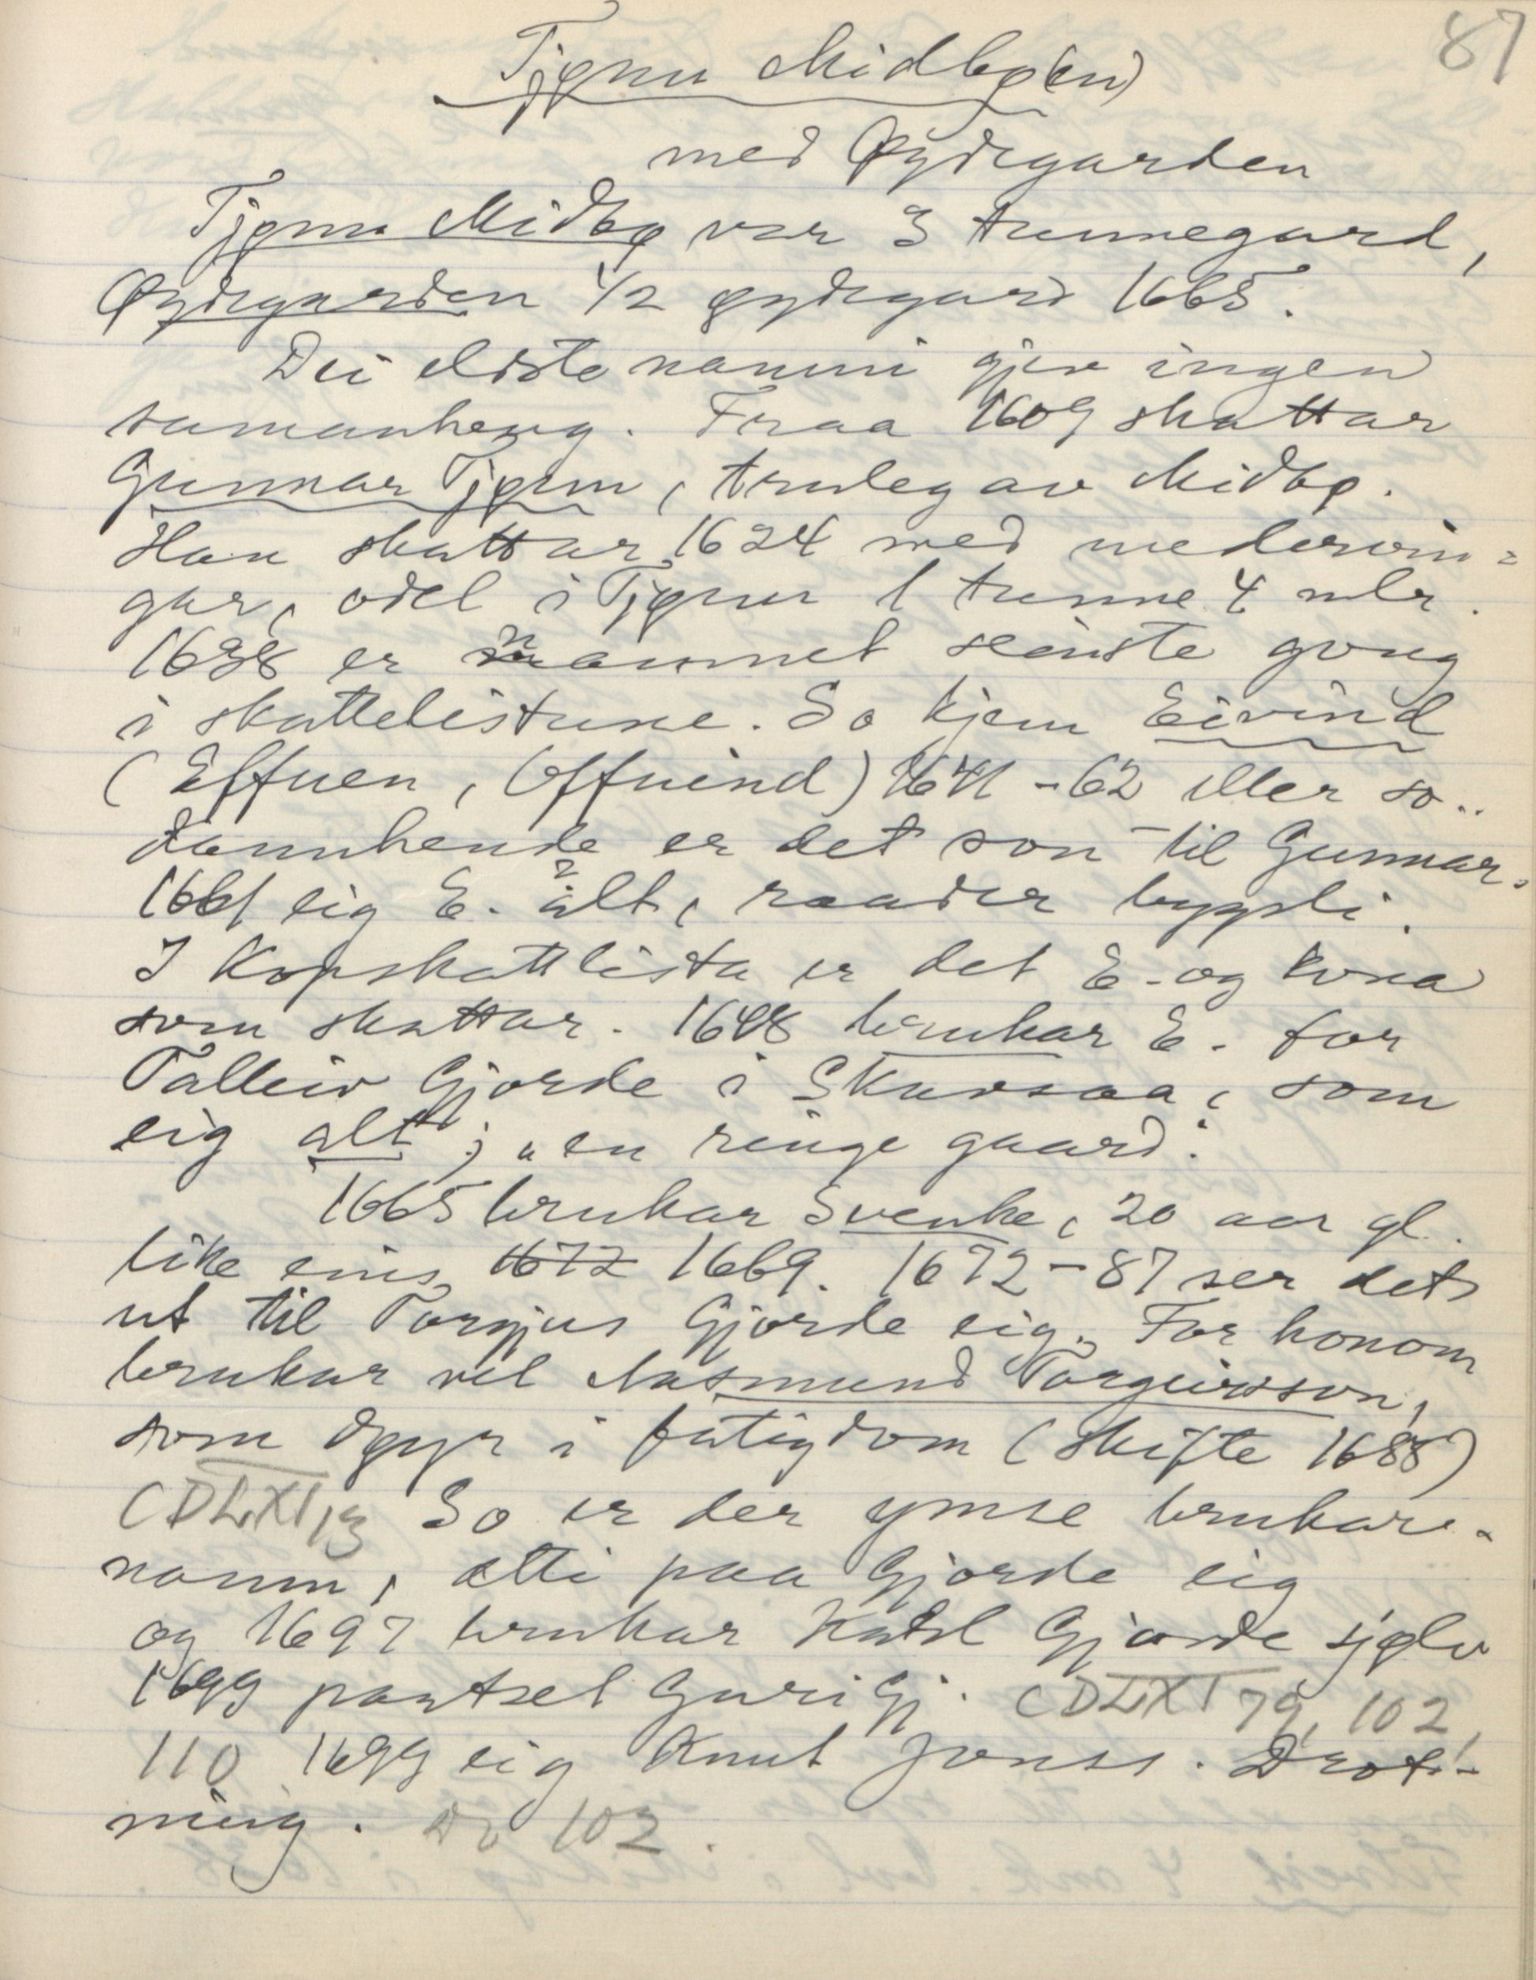 87
Tjønn Midbø(en)
med Øydegarden
Tjønn Midbø var 3 tunnegard,
Øydegarden 1/2 øydegard 1665.
Dei eldste namni gjev ingen
samanheng. Fraa 1609 skattar
Gunnar Tjønn, truleg av Midbø.
Han skattar 1624 med
gar, odel i Tjønn 1 tunne 4 mlr.
1638 er namnet seinste gong
i skattelistune. So kjem Eivind
(Effuen, Offuind) 1641-62 eller so..
Sannhende er det son til Gunnar.
1661 eig E. alt, raader bygsli.
I Kopskattlista er det E. og kona
som skattar. 1648 brukar E. for
Talleiv Gjorde i Skavsaa, som
eig alt; "en ringe gaard".
1665 brukar Svenke, 20 aar gl.
like eins 1672 1669. 1672-87 ser det
ut til Torgjus Gjorde eig. For honom
brukar vel Aasmund Torgeirsson,
som døyr i fatigdom (skifte 1688)
CDLXI 13 So er der ymse brukar-
namn, atti paa Gjorde eig
og 1697 brukar Ketil Gjorde sjølv
1699 pantset Guri Gj. CDLXI 79, 102,
110 1699 eig Knut Jonss. Drot-
ning. Do 102.